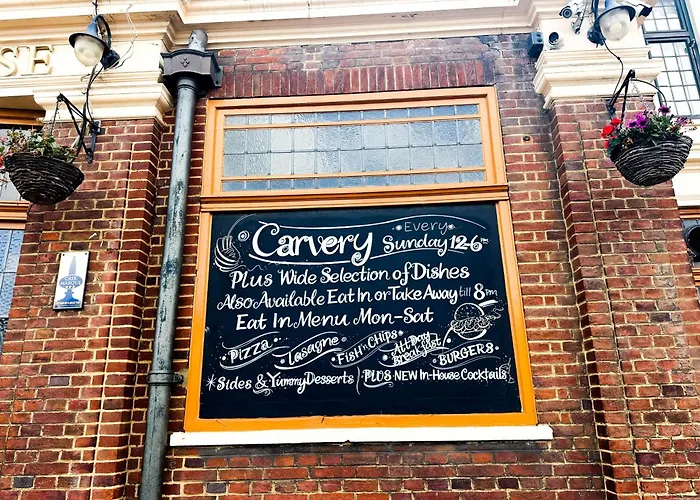 SE
CASK MARQUE
Carvery Every Sunday 12-6pm
Plus Wide Selection of Dishes
Also Available Eat In or Take Away till 8pm
Eat In Menu Mon-Sat
Pizza Lasagne Fish n' Chips All Day Breakfast Burgers
Sides & Yummy Desserts Plus New In-House Cocktails